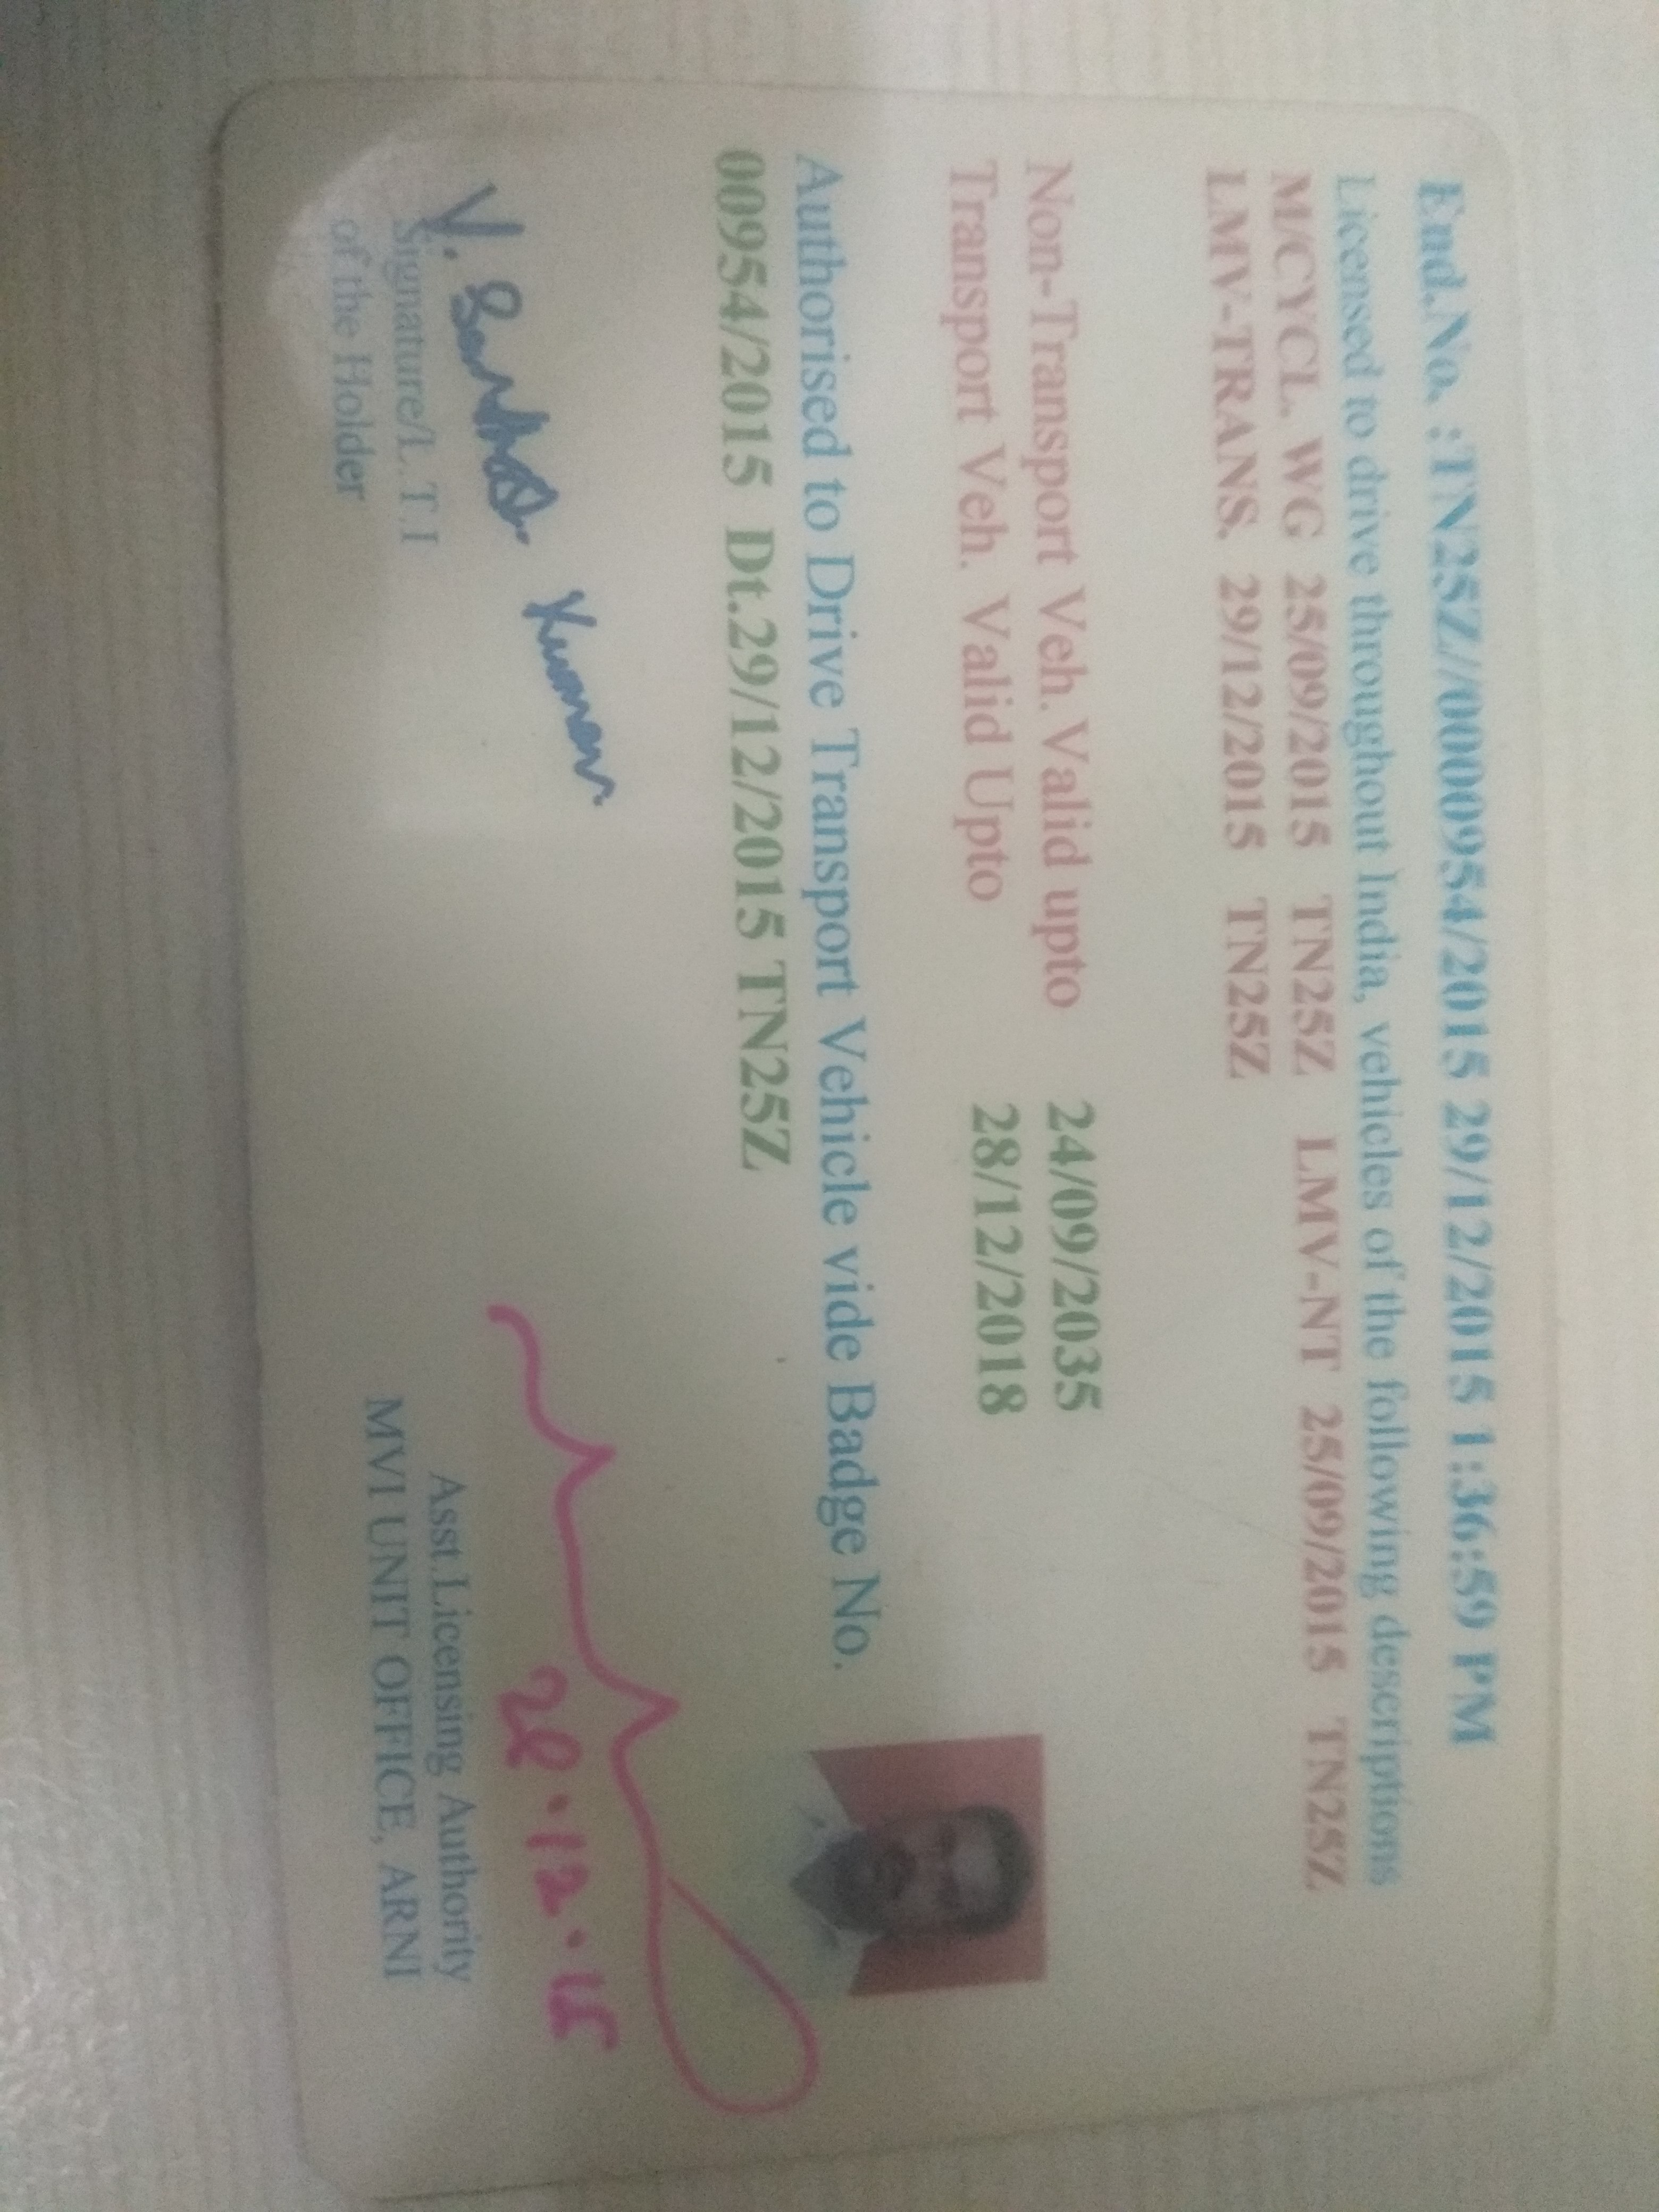 End.No. :TN25Z//0000954/2015 29/12/2015 1:36:59 PM
Licensed to drive throughout India, vehicles of the following descriptions
M/CYCL. WG 25/09/2015 TN25Z LMV-NT 25/09/2015 TN25Z
LMV-TRANS. 29/12/2015 TN25Z
Non-Transport Veh. Valid upto 24/09/2035
Transport Veh. Valid Upto 28/12/2018
Authorised to Drive Transport Vehicle vide Badge No.
00954/2015 Dt.29/12/2015 TN25Z
V. Kumar
Signature/L.T.I
of the Holder
Asst.Licensing Authority
MVI UNIT OFFICE, ARNI